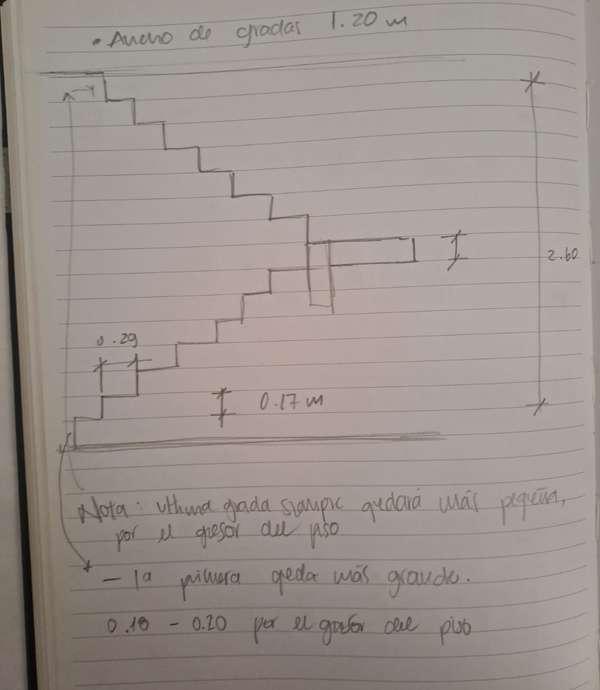 • Ancho de gradas 1.20 m
2.60
0.29
0.17 m
Nota: ultima grada siempre quedará más pequeña,
por el grosor del piso
- la primera queda más grande.
0.18 - 0.20 por el grosor del piso